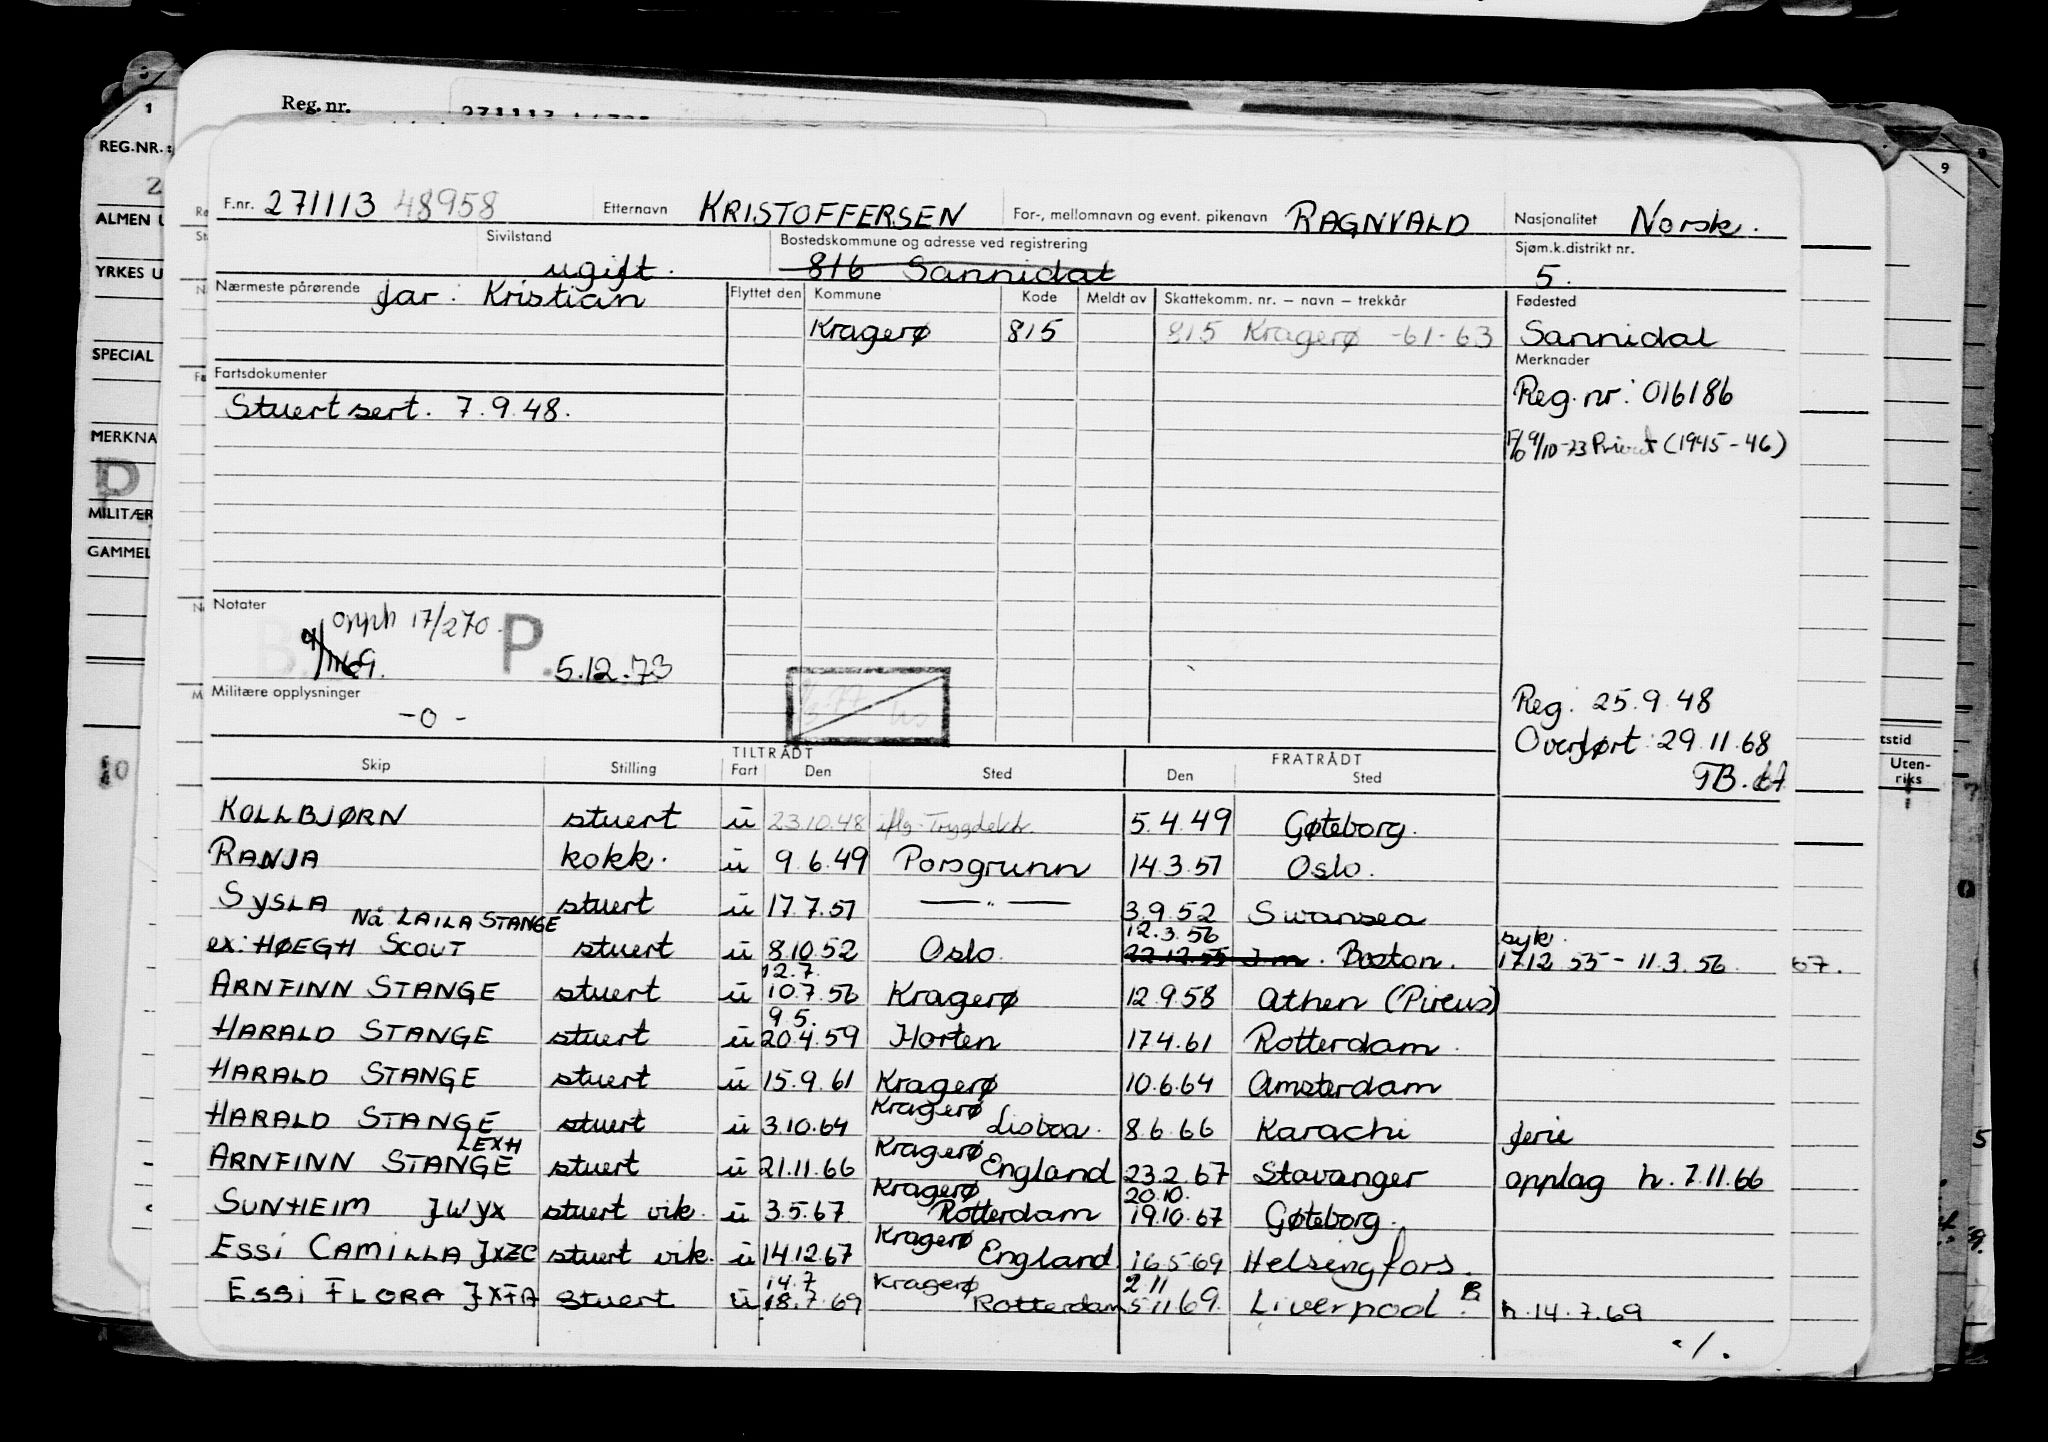 Reg. nr.
REG.NR.:
ALMEN U
YRKES U
SPECIAL
MERKNA
P
MILITÆR
GAMMEL
F.nr. 271113 48958 Etternavn KRISTOFFERSEN For-, mellomnavn og event. pikenavn RAGNVALD Nasjonalitet Norsk.
Sivilstand ugift. Bostedskommune og adresse ved registrering 816 Sannidal Sjøm.k.distrikt nr. 5.
Nærmeste pårørende far: Kristian Flyttet den Kommune Kode Meldt av Skattekomm. nr. – navn – trekkår Fødested
Kragerø 815 815 Kragerø -61-63 Sannidal
Merknader
Fartsdokumenter
Stuert sert. 7.9.48.
Reg. nr: 016186
9/10-73 Privat (1945-46)
Notater
opph 17/2 70.
P. 5.12.73
Militære opplysninger
-0-
Reg: 25.9.48
Overført: 29.11.68
TB.
TILTRÅDT FRATRÅDT
Skip Stilling Fart Den Sted Den Sted
KOLLBJØRN stuert ū 23.10.48 iflg. Trygdekt. 5.4.49 Gøteborg.
RANJA kokk. ū 9.6.49 Porsgrunn 14.3.51 Oslo.
SYSLA stuert ū 17.7.51 —— " —— 3.9.52 Swansea
Nå LAILA STANGE 12.3.56 syk.
ex: HØEGH SCOUT stuert ū 8.10.52 Oslo 22.12.55 J.m. Boston. 17.12 55 - 11.3.56
12.7.
ARNFINN STANGE stuert ū 10.7.56 Kragerø 12.9.58 Athen (Pireus)
9.5.
HARALD STANGE stuert ū 20.4.59 Horten 17.4.61 Rotterdam.
HARALD STANGE stuert ū 15.9.61 Kragerø 10.6.64 Amsterdam
HARALD STANGE stuert ū 3.10.64 Kragerø Lisboa. 8.6.66 Karachi ferie
LEXH
ARNFINN STANGE stuert ū 21.11.66 Kragerø England 23.2.67 Stavanger opplag h. 7.11.66
20.10.
SUNHEIM JWYX stuert vik. ū 3.5.67 Kragerø Rotterdam 19.10.67 Gøteborg.
ESSI CAMILLA JXZC stuert vik. ū 14.12.67 Kragerø England 16.5.69 Helsingfors.
14.7 2.11
ESSI FLORA JXFA stuert ū 18.7.69 Kragerø Rotterdam 5.11.69. Liverpool. h. 14.7.69
./.
tstid
Uten-
riks